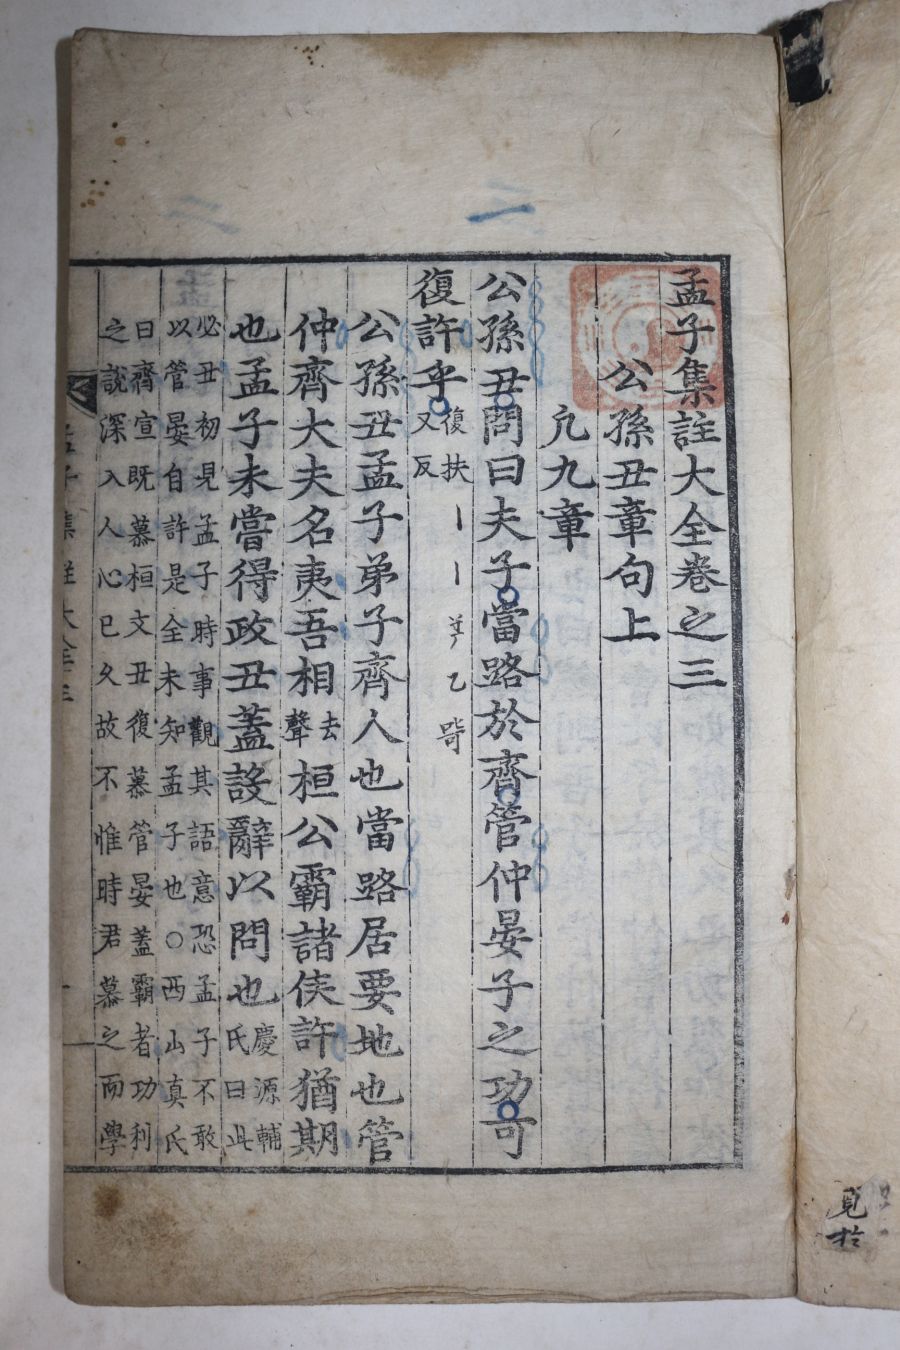 孟子集註大全卷之三
公孫丑章句上
凡九章
公孫丑問曰夫子當路於齊管仲晏子之功可
復許乎復扶又反
公孫丑孟子弟子齊人也當路居要地也管
仲齊大夫名夷吾相去聲桓公霸諸侯許猶期
也孟子未嘗得政丑蓋設辭以問也慶源輔氏曰此
必丑初見孟子時事觀其語意恐孟子不敢
以管晏自許是全未知孟子也○西山真氏
曰齊宣既慕桓文丑復慕管晏蓋霸者功利
之說深入人心已久故不惟時君慕之而學
孟子集註大全三
一
二
見於